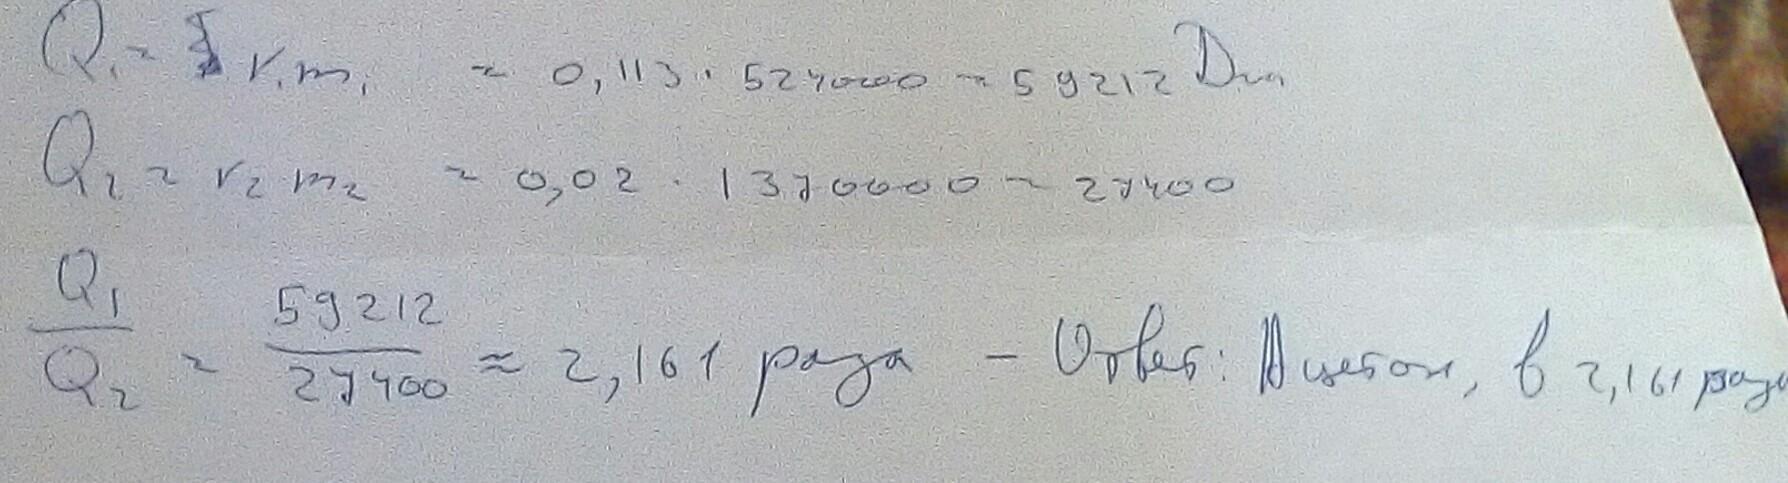 Q₁ = r₁m₁ = 0,113 · 524000 = 59212 Дж
Q₂ = r₂ m₂ = 0,02 · 1370000 = 27400
Q₁/Q₂ = 59212/27400 ≈ 2,161 раза – Ответ: Ацетон, в 2,161 раза